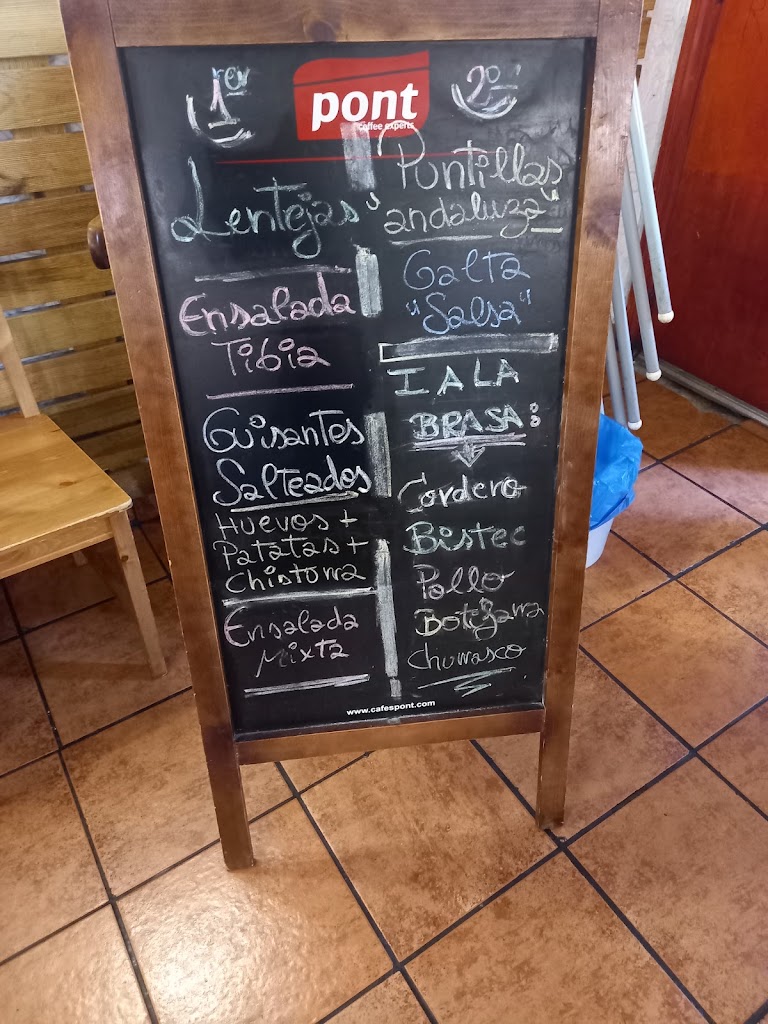 pont
coffee experts
1rer
Lentejas
Ensalada
Tibia
Guisantes
Salteados
Huevos +
Patatas +
Chistorra
Ensalada
Mixta
2º
Puntillas
"andaluza"
Galta
"Salsa"
I A LA
BRASA:
Cordero
Bistec
Pollo
Botifarra
Churrasco
www.cafespont.com